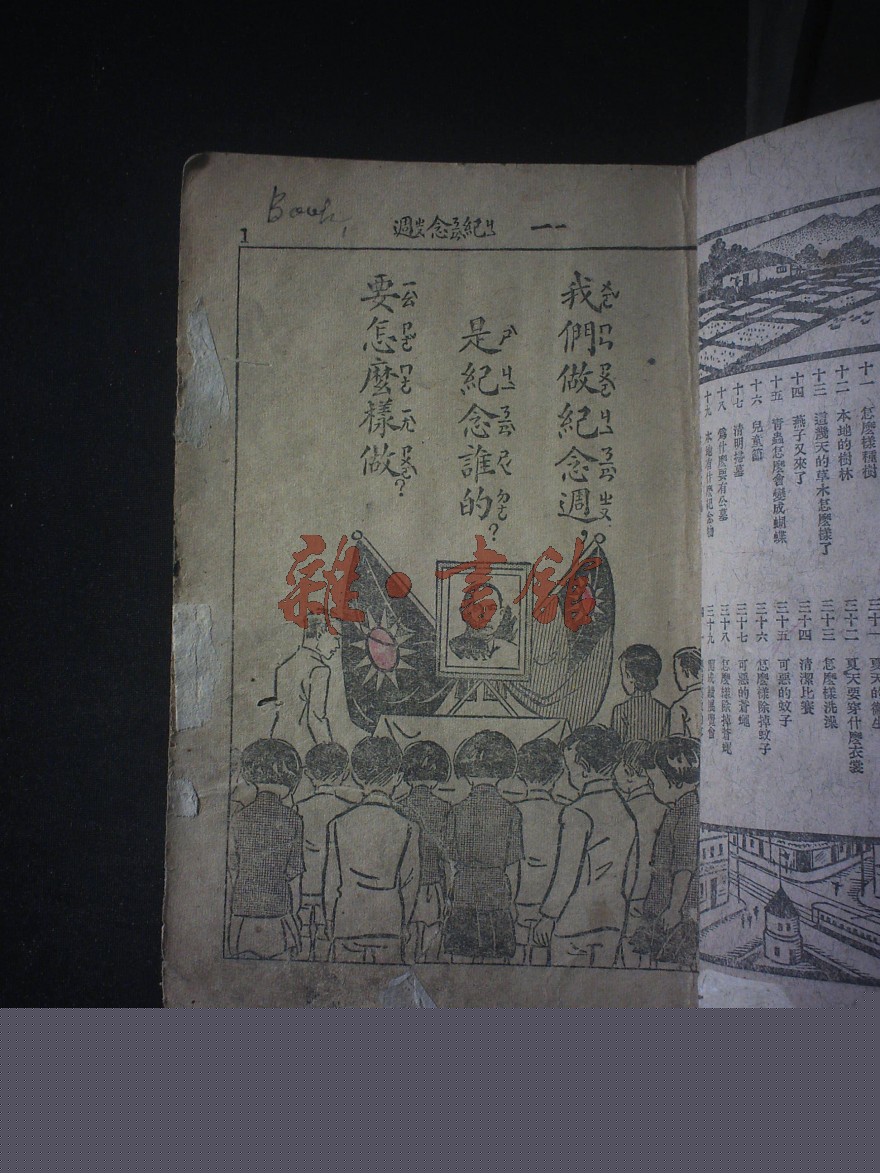 Book
1
一 紀念週
我們做紀念週，
是紀念誰的？
要怎麼樣做？
雜·書館
十一 怎麼樣種樹
十二 本地的樹林
十三 這幾天的草木怎麼樣了
十四 燕子又來了
十五 青蟲怎麼會變成蝴蝶
十六 兒童節
十七 清明掃墓
十八 為什麼要有公墓
十九 本地有什麼紀念
三十一 夏天的衞生
三十二 夏天要穿什麼衣裳
三十三 怎麼樣洗澡
三十四 清潔比賽
三十五 可惡的蚊子
三十六 怎麼樣除掉蚊子
三十七 可惡的蒼蠅
三十八 怎麼樣除掉蒼蠅
三十九